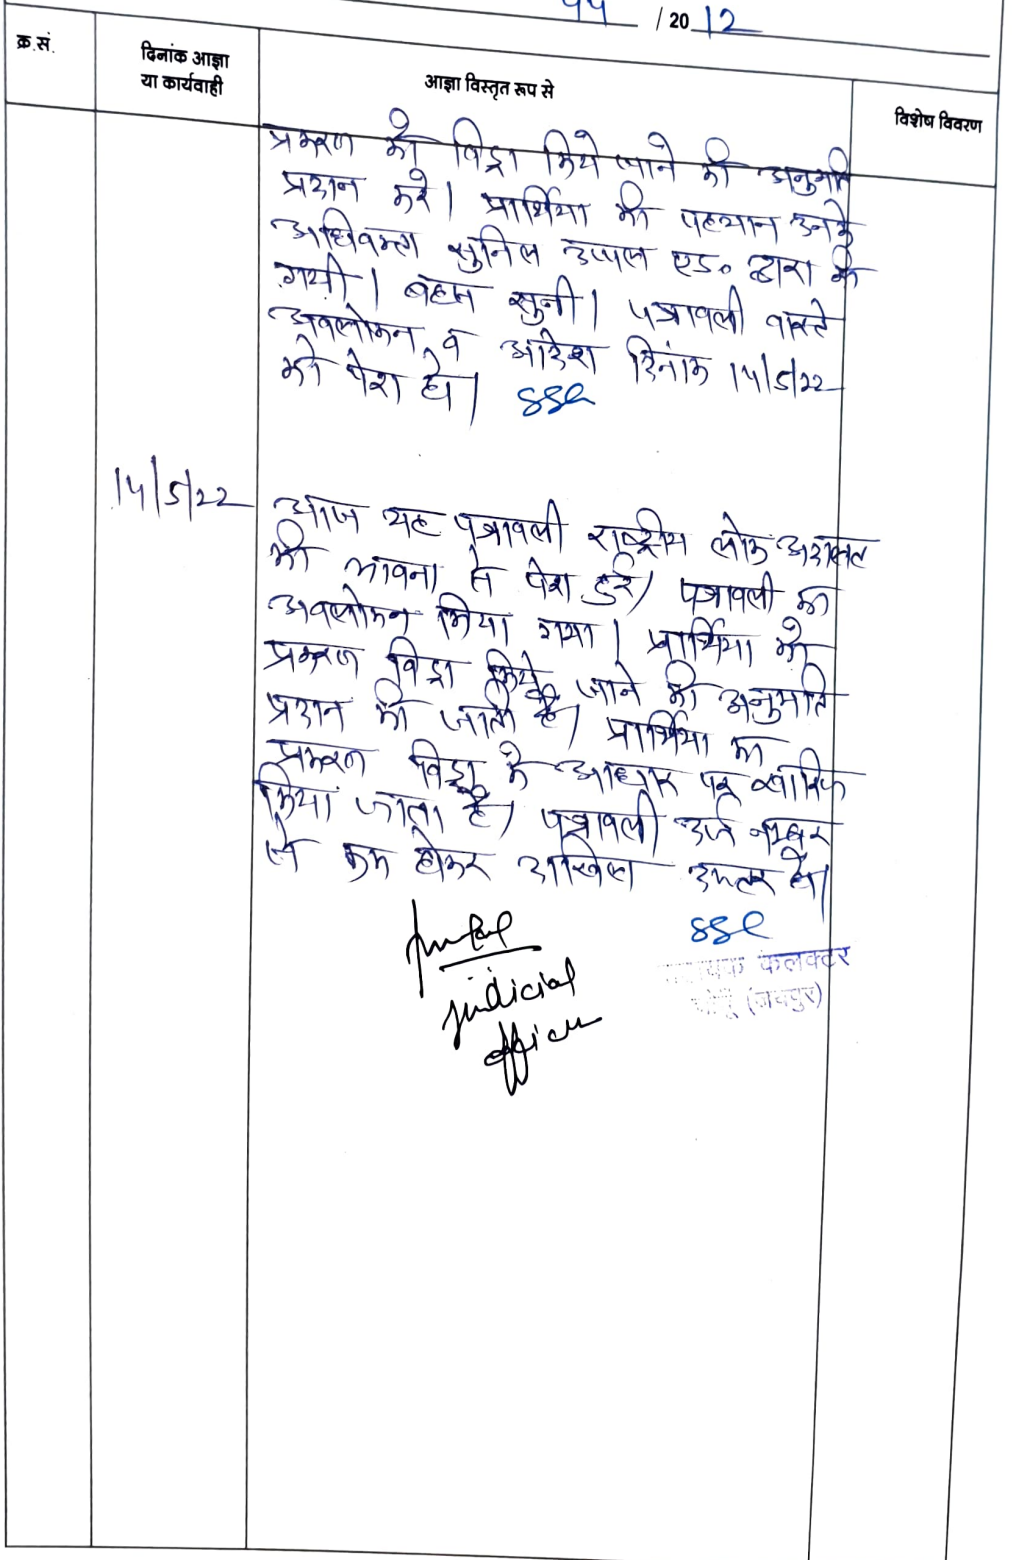 44 / 2012
क्र.सं.
दिनांक आज्ञा
या कार्यवाही
आज्ञा विस्तृत रूप से
विशेष विवरण
प्रकरण को विड्रा किये जाने की अनुमति
प्रदान करे। प्रार्थिया की पहचान उनके
अधिवक्ता सुनिल उप्पल एड० द्वारा की
गयी। बहस सुनी। पत्रावली वास्ते
अवलोकन व आदेश दिनांक 14/5/22
को पेश हो।
14/5/22
आज यह पत्रावली राष्ट्रीय लोक अदालत
की भावना से पेश हुई। पत्रावली का
अवलोकन किया गया। प्रार्थिया को
प्रकरण विड्रा किये जाने की अनुमति
प्रदान की जाती है। प्रार्थिया का
प्रकरण विड्रा के आधार पर खारिज
किया जाता है। पत्रावली दर्ज नम्बर
से कम होकर दाखिल दफ्तर हो।
judicial
officer
कलक्टर
(जयपुर)